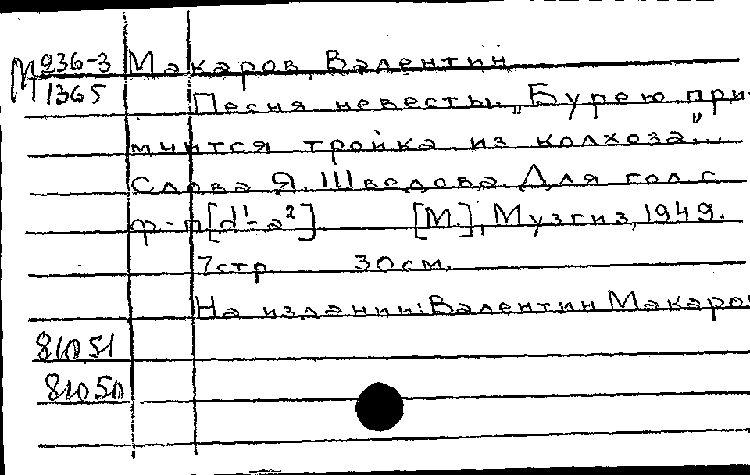 М 236-3 Макаров, Валентин
1365 Песня невесты. „Бурею при-
мчится тройка из колхоза..."
Слова Я. Шведова. Для гол. с
ф-п [d¹-a²] [М], Музгиз, 1949.
7 стр 30 см.
На издании: Валентин Макаров
81051
81050